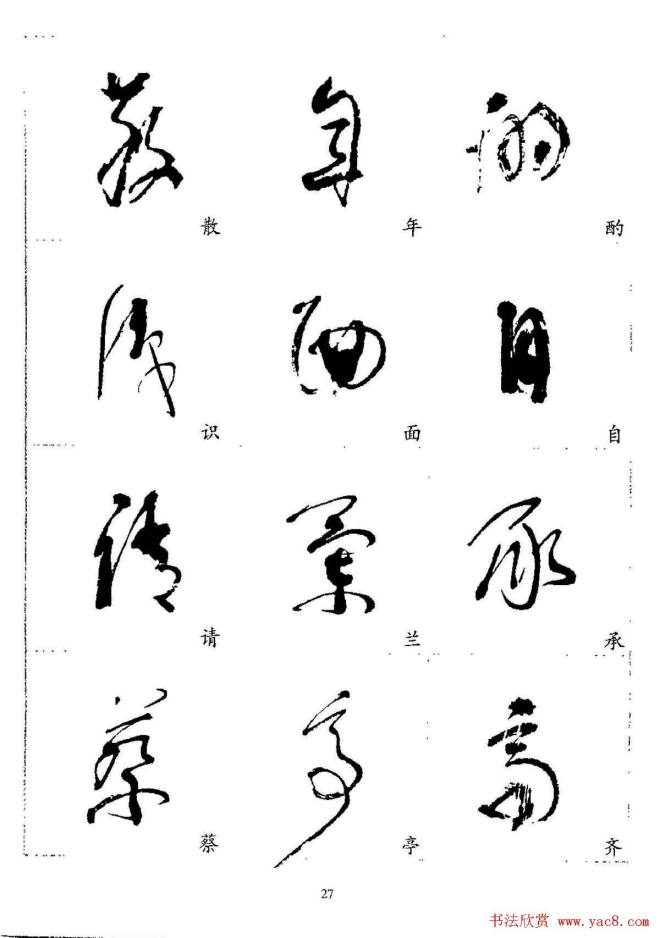 散 年 酌
识 面 自
请 兰 承
蔡 亭 齐
27
书法欣赏 www.yac8.com